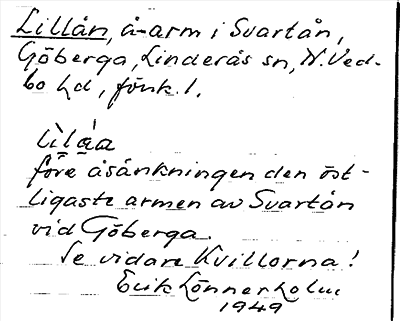 Lillån, å-arm i Svartån,
Göberga, Linderås sn, N. Ved-
bo hd, Jönk. l.
lìlåa
före åsänkningen den öst-
ligaste armen av Svartån
vid Göberga.
Se vidare Kvillorna!
Erik Lönnerholm
1949